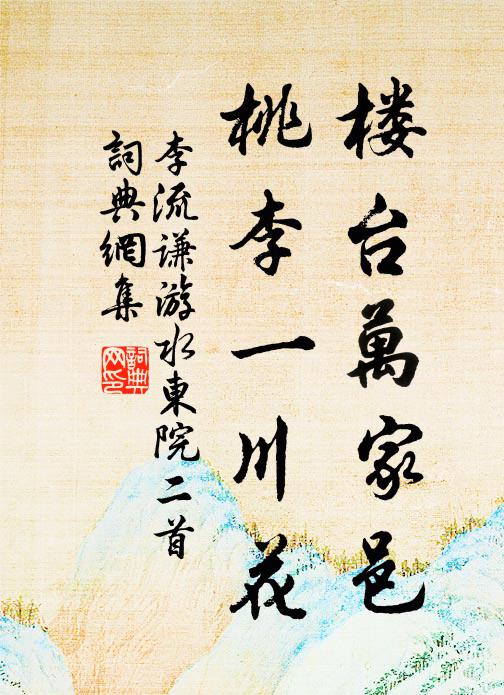 楼台萬家邑
桃李一川花
李流谦游水東院二首
詞典網集
詞典网印